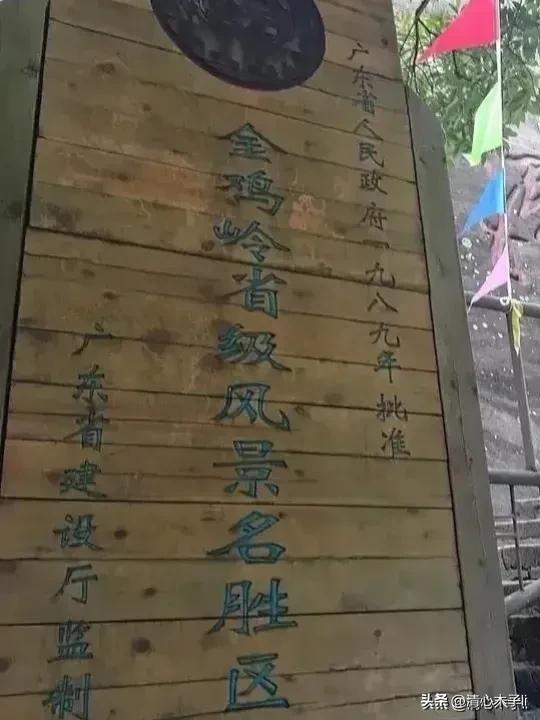 广东省人民政府一九八九年批准
金鸡岭省级风景名胜区
广东省建设厅监制
头条 @清心木子lj